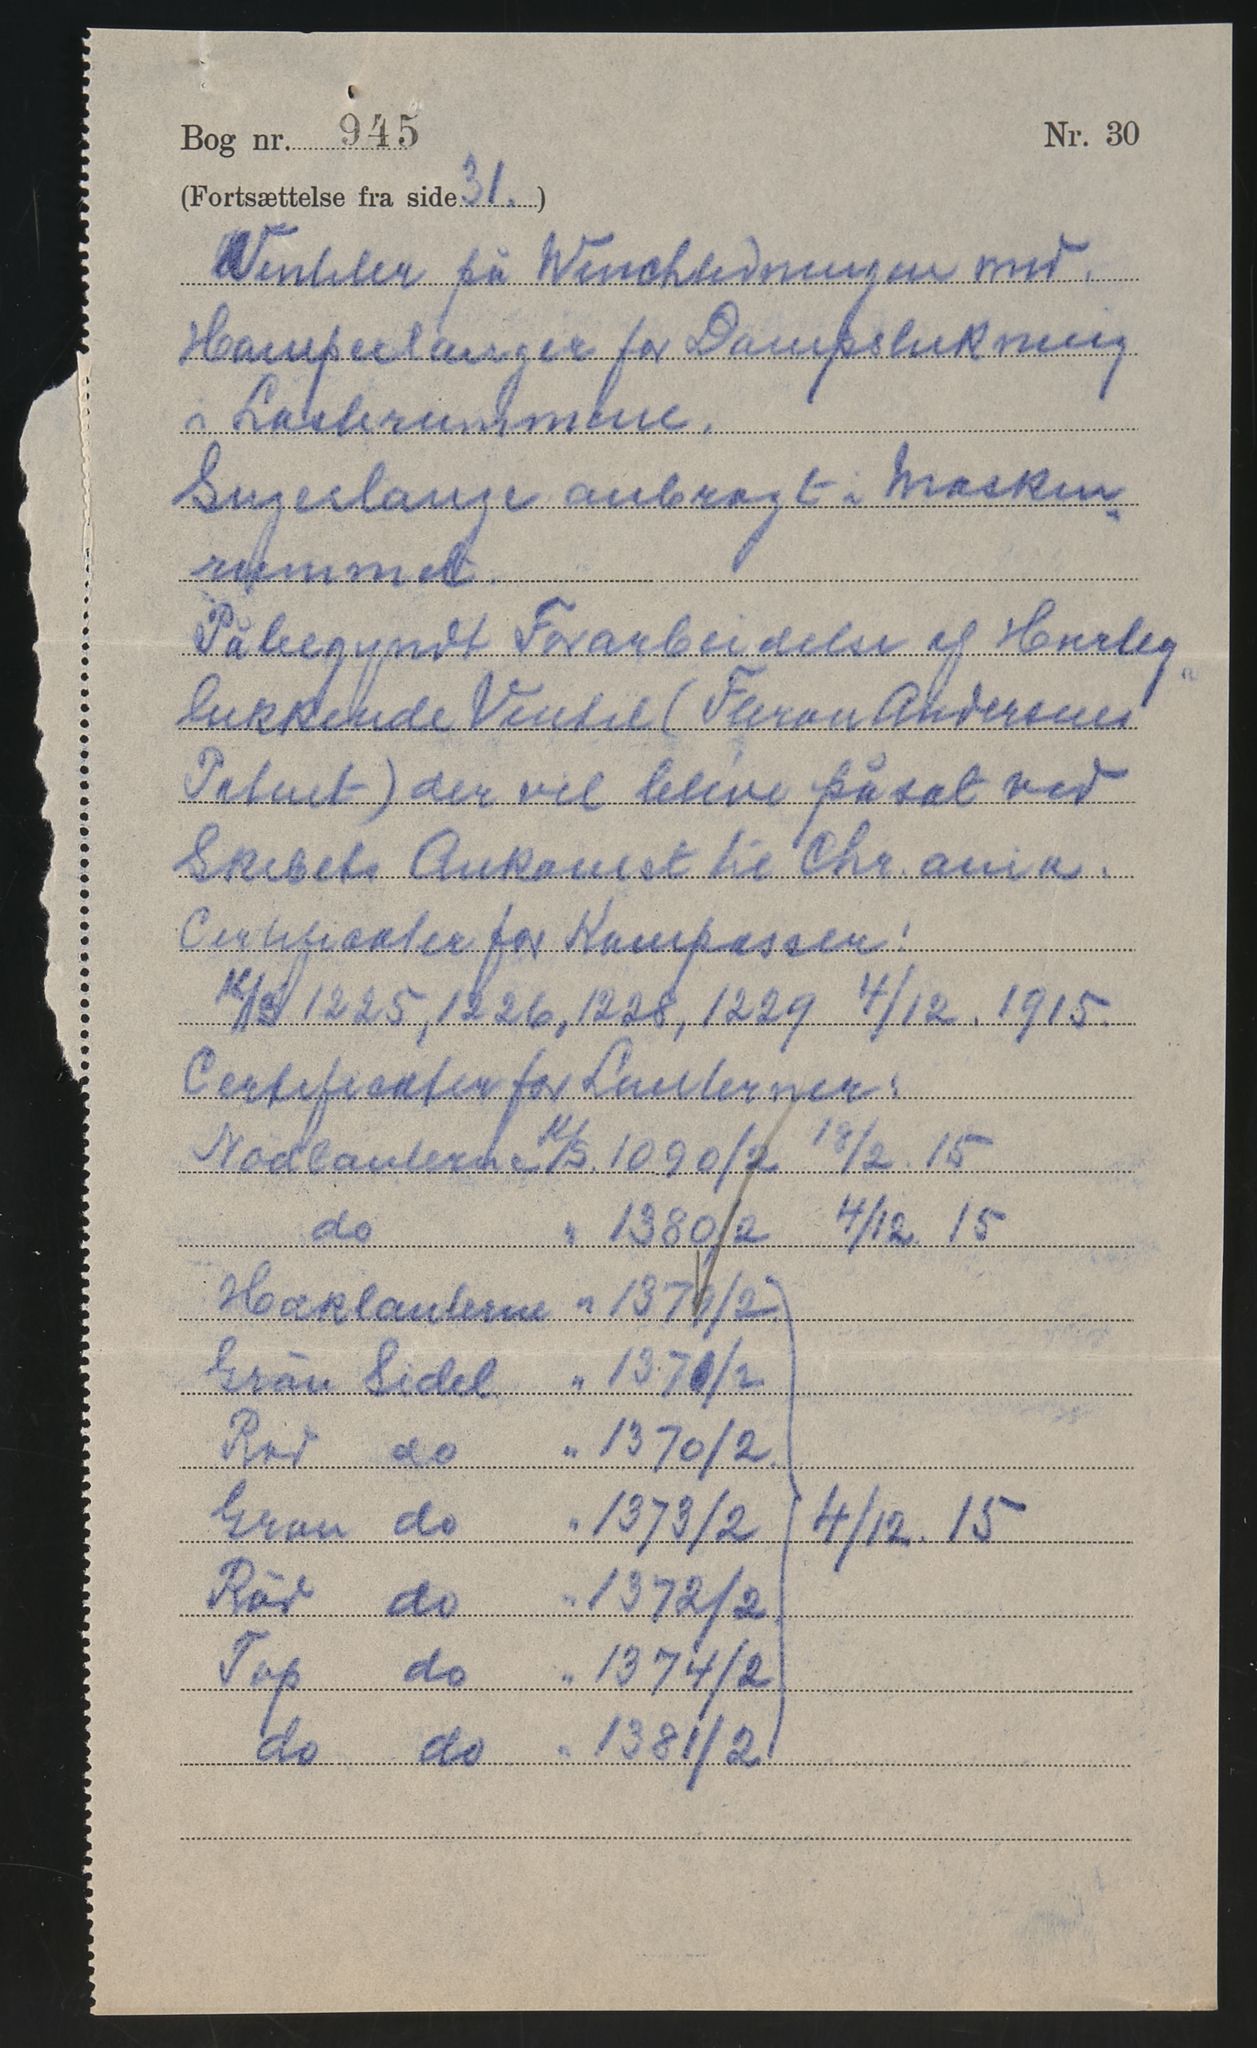 Bog nr. 945 Nr. 30
(Fortsættelse fra side 31.)
Ventiler på Winchledningen med
Hampeslanger for Dampslukning
i Lasterummene.
Sugeslange anbragt i Maskin„
rummet.
Påbegyndt Forarbeidelse af Hurtig„
lukkende Ventil ( Andersens
Patent) der vil blive påsat ved
Skibets Ankomst til Chr.ania.
Certifikater for Kompasser:
1225, 1226, 1228, 1229 4/12. 1915.
Certifikater for Lanterner:
Nödlanterne 1090/2 18/2. 15
do „ 1380/2 4/12. 15
Hæklanterne „ 1379/2
Grön Sidel. „ 1371/2
Rød do „ 1370/2
Grön do „ 1373/2 4/12. 15
Röd do „ 1372/2
Top do „ 1374/2
do do „ 1381/2